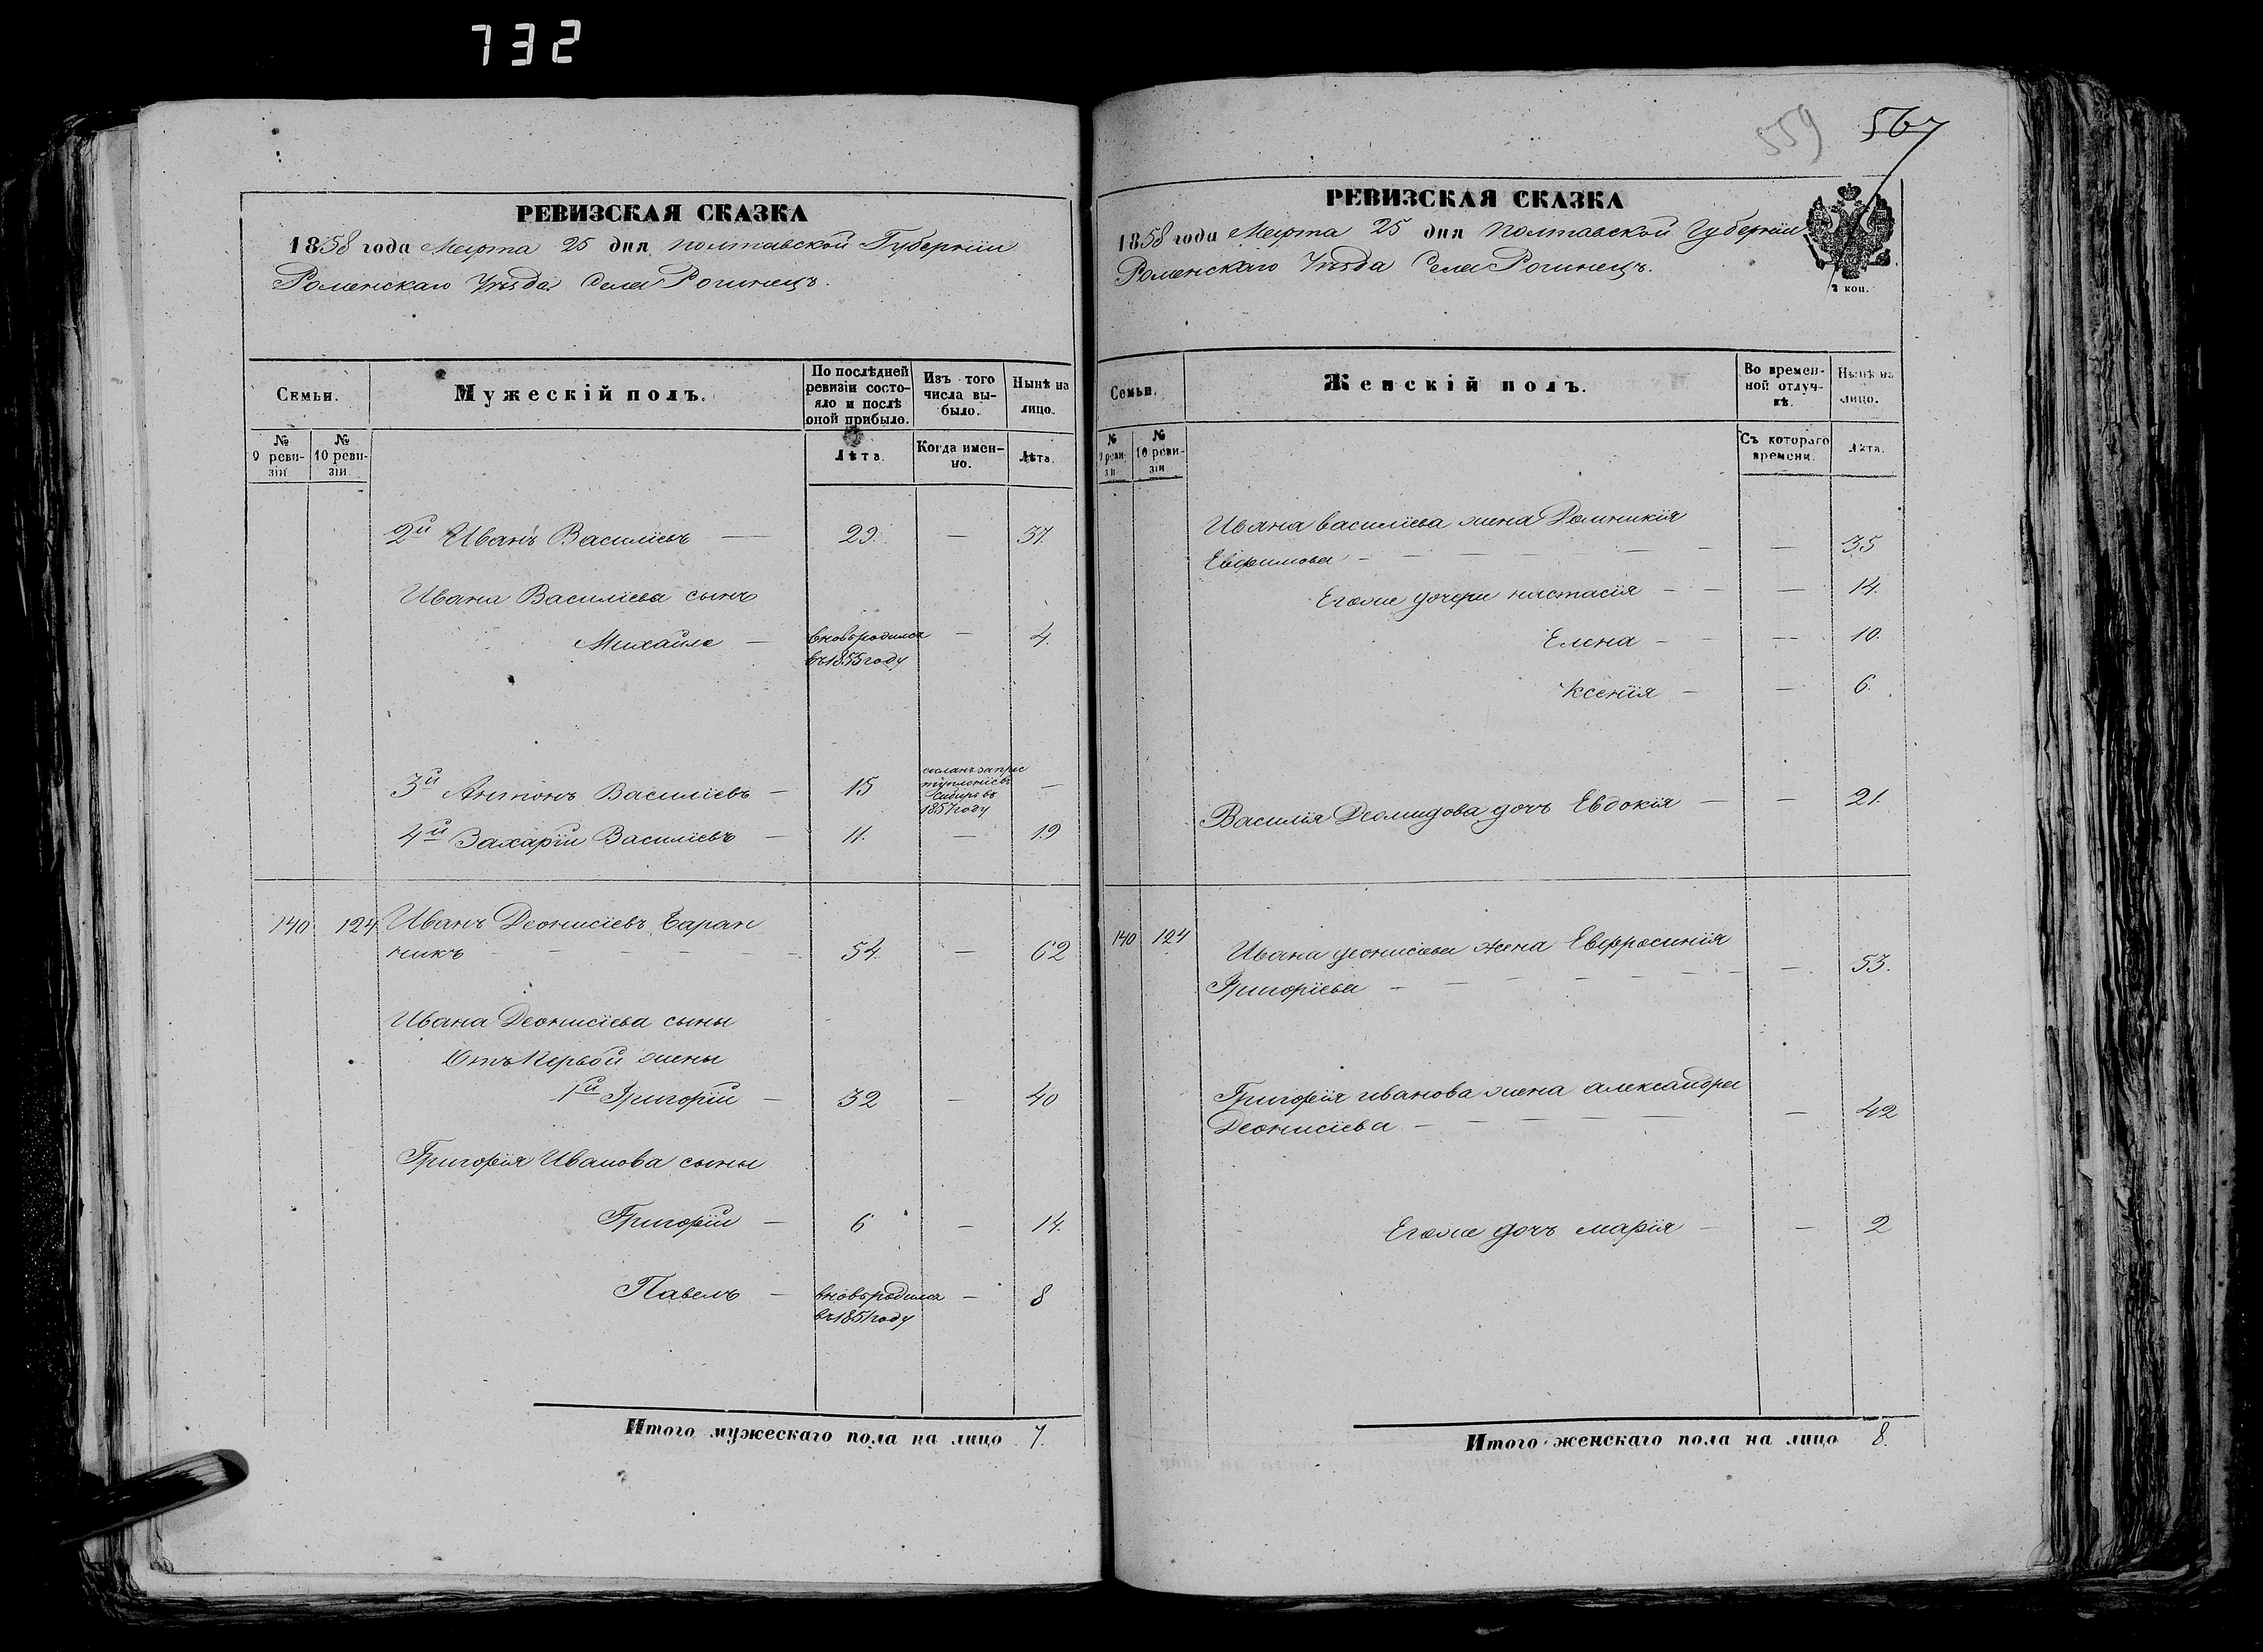 732
РЕВИЗСКАЯ СКАЗКА
1858 года Марта 25 дня Полтавской Губерніи
Роменскаго Уѣзда Села Рогинецъ.
Семьи.
Мужескій полъ.
По послѣдней ревизіи состояло и послѣ оной прибыло.
Изъ того числа выбыло.
Нынѣ на лицо.
№ 9 ревизіи
№ 10 ревизіи.
Лѣта.
Когда именно.
Лѣта.
2й Иванъ Василіевъ — 29. — 37.
Ивана Василіева сынъ
Михайло — вновь родился — 4.
въ 1855 году
3й Антонъ Василіевъ — 15 сосланъ за прес
тупленіе въ
Сибирь въ
1857 году —
4й Захарій Василіевъ — 11. — 19
140 124 Иванъ Деонисіевъ Баран
никъ — 54. — 62
Ивана Деонисіева сыны
Отъ Первой жены
1й Григорій — 32 — 40
Григорія Иванова сыны
Григорій — 6 — 14.
Павелъ — вновь родился — 8
въ 1851 году
Итого мужескаго пола на лицо 7.
559 567
РЕВИЗСКАЯ СКАЗКА
1858 года Марта 25 дня Полтавской Губерніи
Роменскаго Уѣзда Села Рогинецъ.
коп.
Семьи.
Женскій полъ.
Во временной отлучкѣ.
Нынѣ на лицо.
№ 9 ревизіи
№ 10 ревизіи
Съ котораго времени.
Лѣта.
Ивана василіева жена Домникія
Евфимова — — 35
Егоже дочери настасія — — 14.
Елена — — 10.
Ксенія — — 6.
Василія Деомидова дочь Евдокія — — 21.
140 124 Ивана деонисіева жена Евфросинія
Григоріева — — 53.
Григорія иванова жена александра
Деонисіева — — 42
Егоже дочь марія — — 2
Итого женскаго пола на лицо 8.